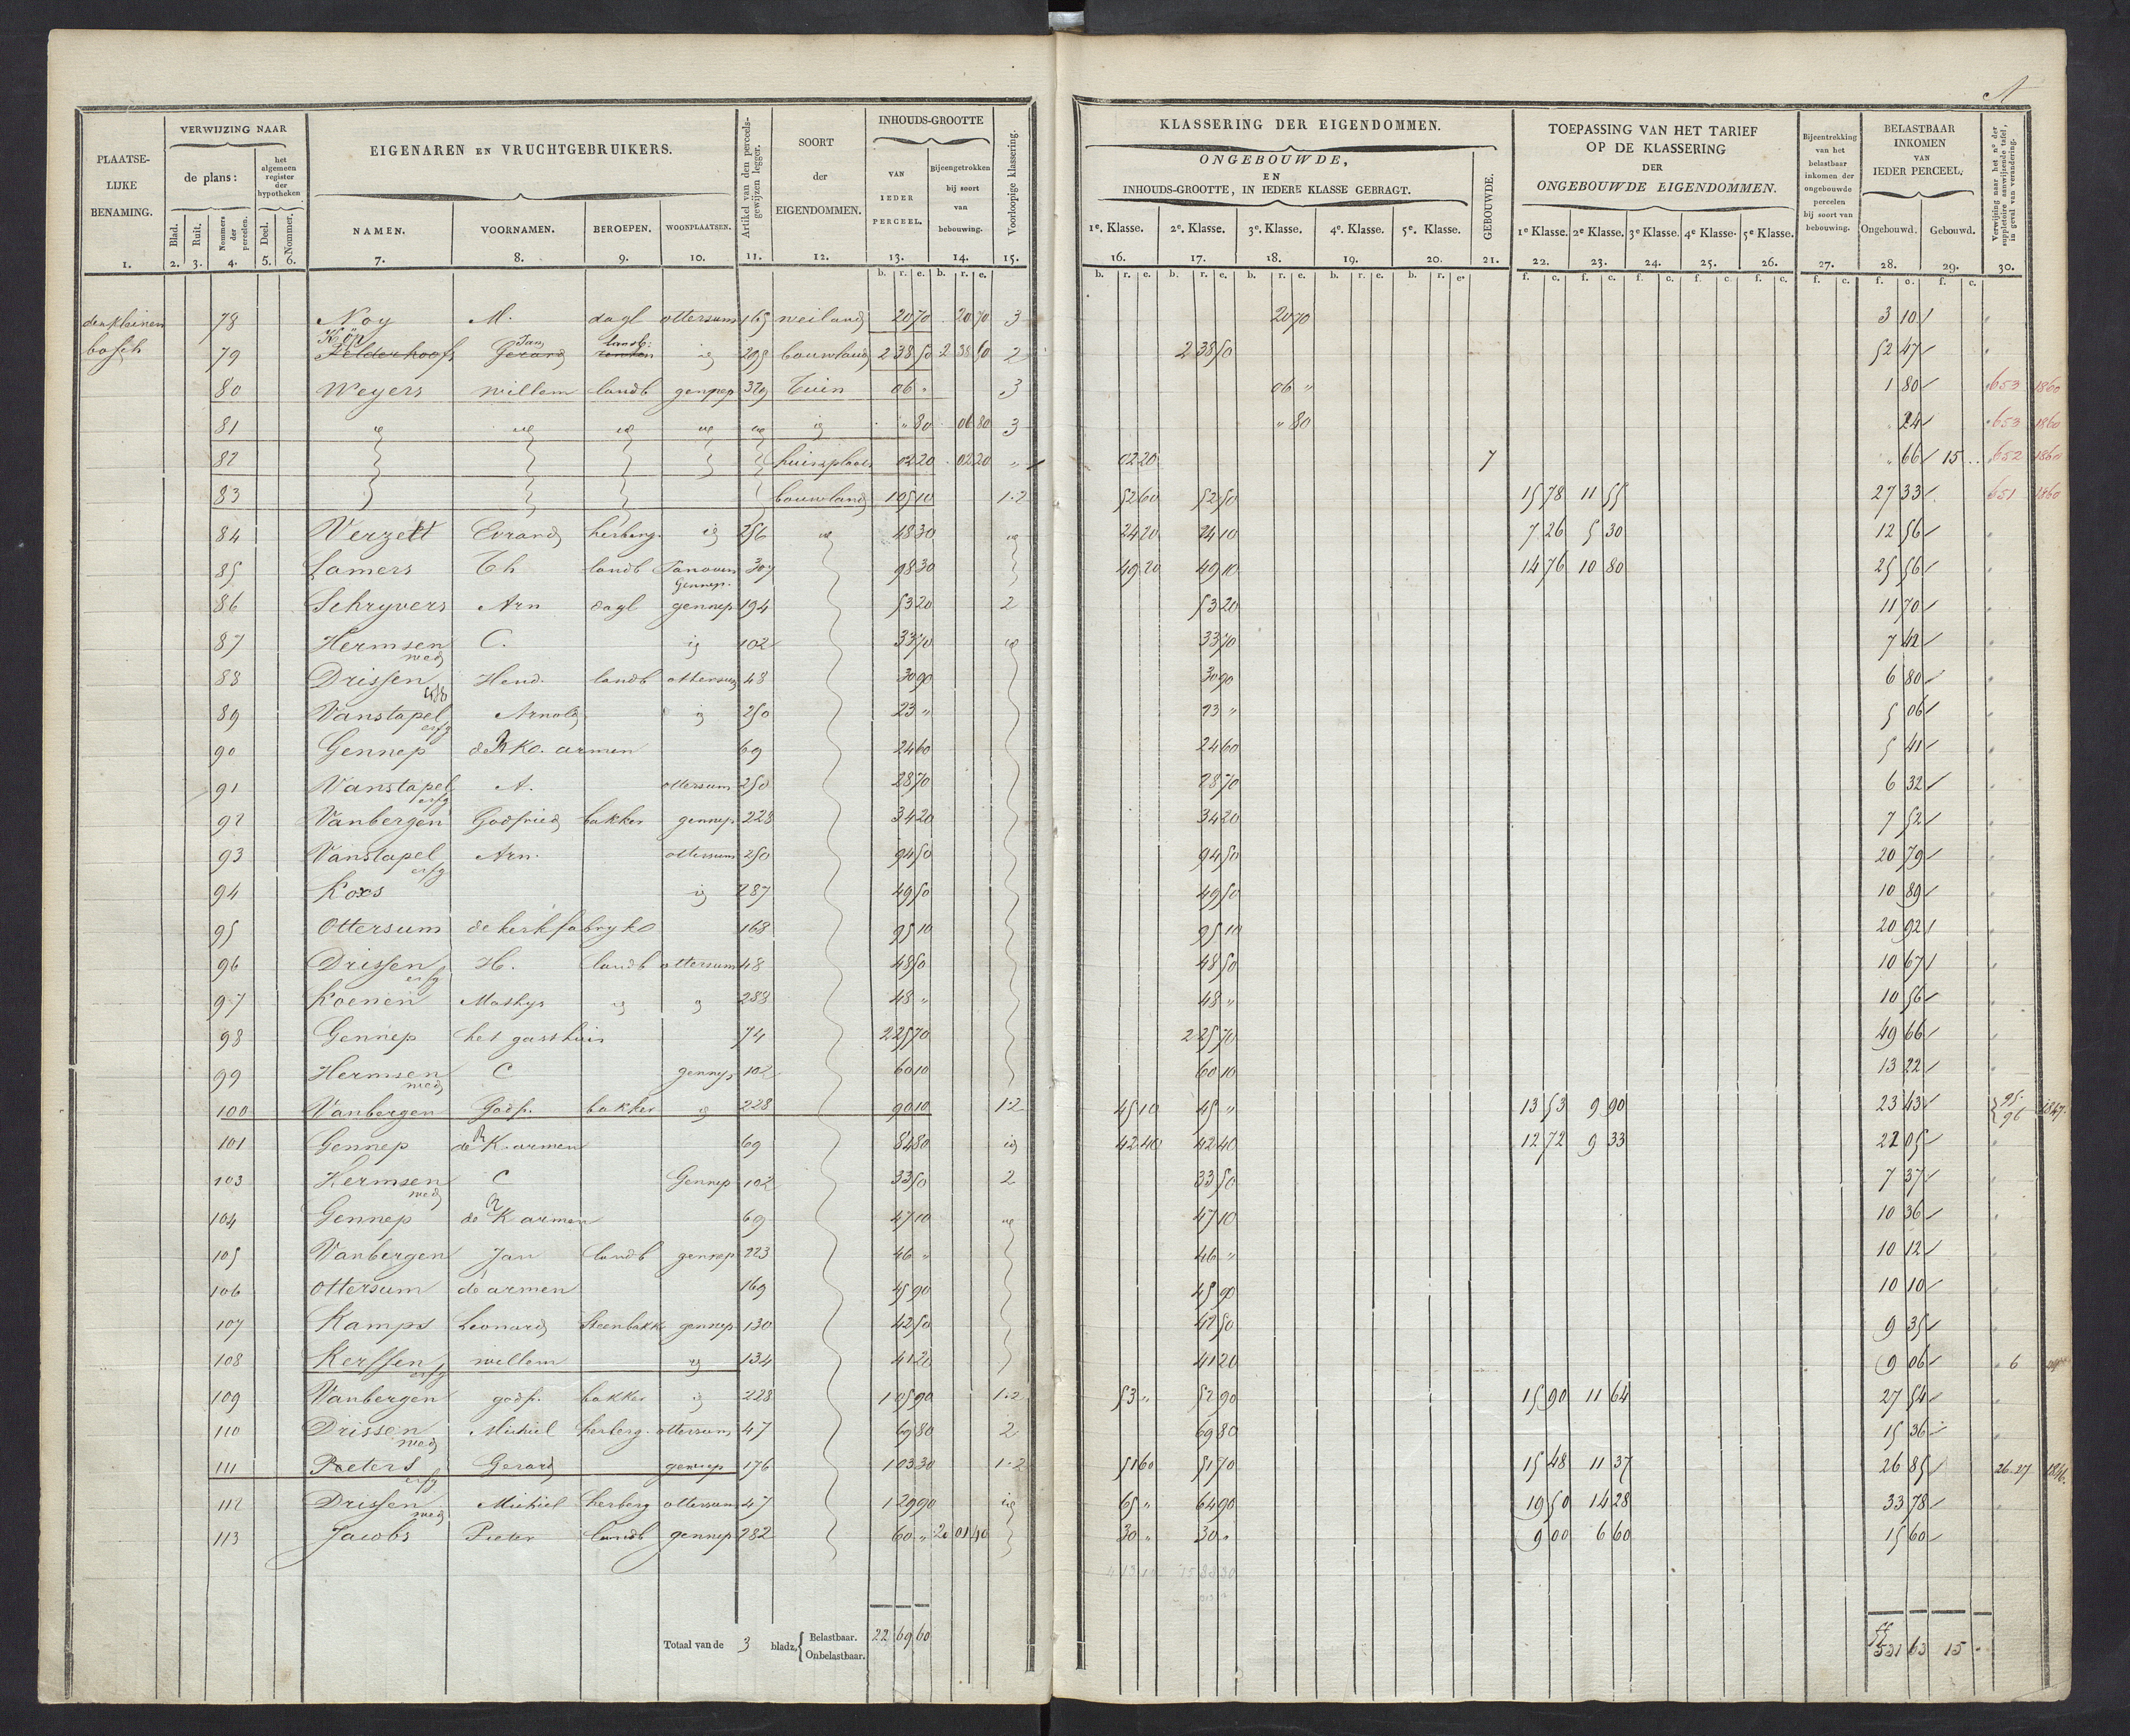 A
PLAATSE-
LIJKE
BENAMING.
1.
VERWIJZING NAAR
de plans:
het algemeen register der hypotheken
Blad. 2. Ruit. 3. Nommers der perceelen. 4. Deel. 5. Nommer. 6.
EIGENAREN EN VRUCHTGEBRUIKERS.
NAMEN. 7. VOORNAMEN. 8. BEROEPEN. 9. WOONPLAATSEN. 10.
Artikel van den perceels-gewijzen legger. 11.
SOORT der EIGENDOMMEN. 12.
INHOUDS-GROOTTE
VAN IEDER PERCEEL. 13. Bijeengetrokken bij soort van bebouwing. 14.
Voorloopige klassering. 15.
KLASSERING DER EIGENDOMMEN.
ONGEBOUWDE,
EN
INHOUDS-GROOTTE, IN IEDERE KLASSE GEBRAGT.
1e. Klasse. 16. 2e. Klasse. 17. 3e. Klasse. 18. 4e. Klasse. 19. 5e. Klasse. 20.
GEBOUWDE. 21.
TOEPASSING VAN HET TARIEF
OP DE KLASSERING
DER
ONGEBOUWDE EIGENDOMMEN.
1e Klasse. 22. 2e Klasse. 23. 3e Klasse. 24. 4e Klasse. 25. 5e Klasse. 26.
Bijeentrekking van het belastbaar inkomen der ongebouwde perceelen bij soort van bebouwing. 27.
BELASTBAAR
INKOMEN
VAN
IEDER PERCEEL.
Ongebouwd. 28. Gebouwd. 29.
Verwijzing naar het no. der suppletoire aanwijzende tafel, in geval van verandering. 30.
den kleinen 78 Noy M. dagl ottersum 165 weiland 20 70 20 70 3 20 70 3 10
bosch 79 Kop Jan landb: Gerard ig 295 bouwland 2 38 50 2 38 50 2 2 38 50 52 47
80 Weyers willem landb gennep 329 Tuin 06 " 3 06 " 1 80 653 1860
81 ig ig ig ig ig ig " 80 06 80 3 " 80 " 24 653 1860
82 huis &plaats 02 20 02 20 " 02 20 7 " 66 15 652 1860
83 bouwland 1 05 10 1.2 52 60 52 50 15 78 11 55 27 33 651 1860
84 Verzett Evrard herberg. ig 256 ig 48 30 ig 24 20 24 10 7 26 5 30 12 56
85 Lamers Th landb Gennep. 307 98 30 49 20 49 10 14 76 10 80 25 56
86 Schryvers Arn dagl gennep 194 53 20 2 53 20 11 70
87 Hermsen wed C. ig 102 33 70 ig 33 70 7 42
88 Drissen Hend. landb ottersum 48 30 90 30 90 6 80
89 Vanstapel erfg Arnold ig 250 23 " 23 " 5 06
90 Gennep de R Ko. armen 69 24 60 24 60 5 41
91 Vanstapel erfg A. ottersum 250 28 70 28 70 6 32
92 Vanbergen Godfried bakker gennep 228 34 20 34 20 7 52
93 Vanstapel erfg Arn. ottersum 250 94 50 94 50 20 79
94 Koxs ig 287 49 50 49 50 10 89
95 Ottersum de kerkfabryko 168 95 10 95 10 20 92
96 Drissen erfg H. landb ottersum 48 48 50 48 50 10 67
97 Koenen Mathys ig ig 288 48 " 48 " 10 56
98 Gennep het gasthuis 74 2 25 70 2 25 70 49 66
99 Hermsen wed C gennep 102 60 10 60 10 13 22
100 Vanbergen Godf. bakker ig 228 90 10 1.2 45 10 45 " 13 53 9 90 23 43 95. 96 1847.
101 Gennep de R K. armen 69 84 80 ig 42 40 42 40 12 72 9 33 22 05
103 Hermsen wed C Gennep 102 33 50 2 33 50 7 37
104 Gennep de R K armen 69 47 10 ig 47 10 10 36
105 Vanbergen Jan landb gennep 223 46 " 46 " 10 12
106 ottersum de armen 169 45 90 45 90 10 10
107 Kamps Leonard Steenbakk gennep 130 42 50 42 50 9 35
108 Kerssen erfg willem ig 134 41 20 41 20 9 06 6
109 Vanbergen godf. bakker ig 228 1 05 90 1.2 53 " 52 90 15 90 11 64 27 54
110 Drissen wed Michiel herberg. ottersum 47 69 80 2 69 80 15 36
111 Peeters erfg Gerard gennep 176 1 03 30 1.2 51 60 51 70 15 48 11 37 26 85 26.27 1846.
112 Drissen wed Michiel herberg ottersum 47 1 29 90 ig 65 " 64 90 19 50 14 28 33 78
113 Jacobs Pieter landb gennep 282 60 " 20 01 40 30 " 30 " 9 00 6 60 15 60
Totaal van de 3 bladz. Belastbaar. 22 69 60
Onbelastbaar.
531 63 15